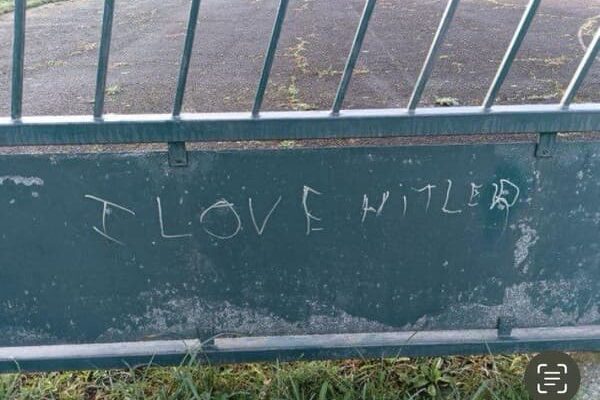 I LOVE HITLER